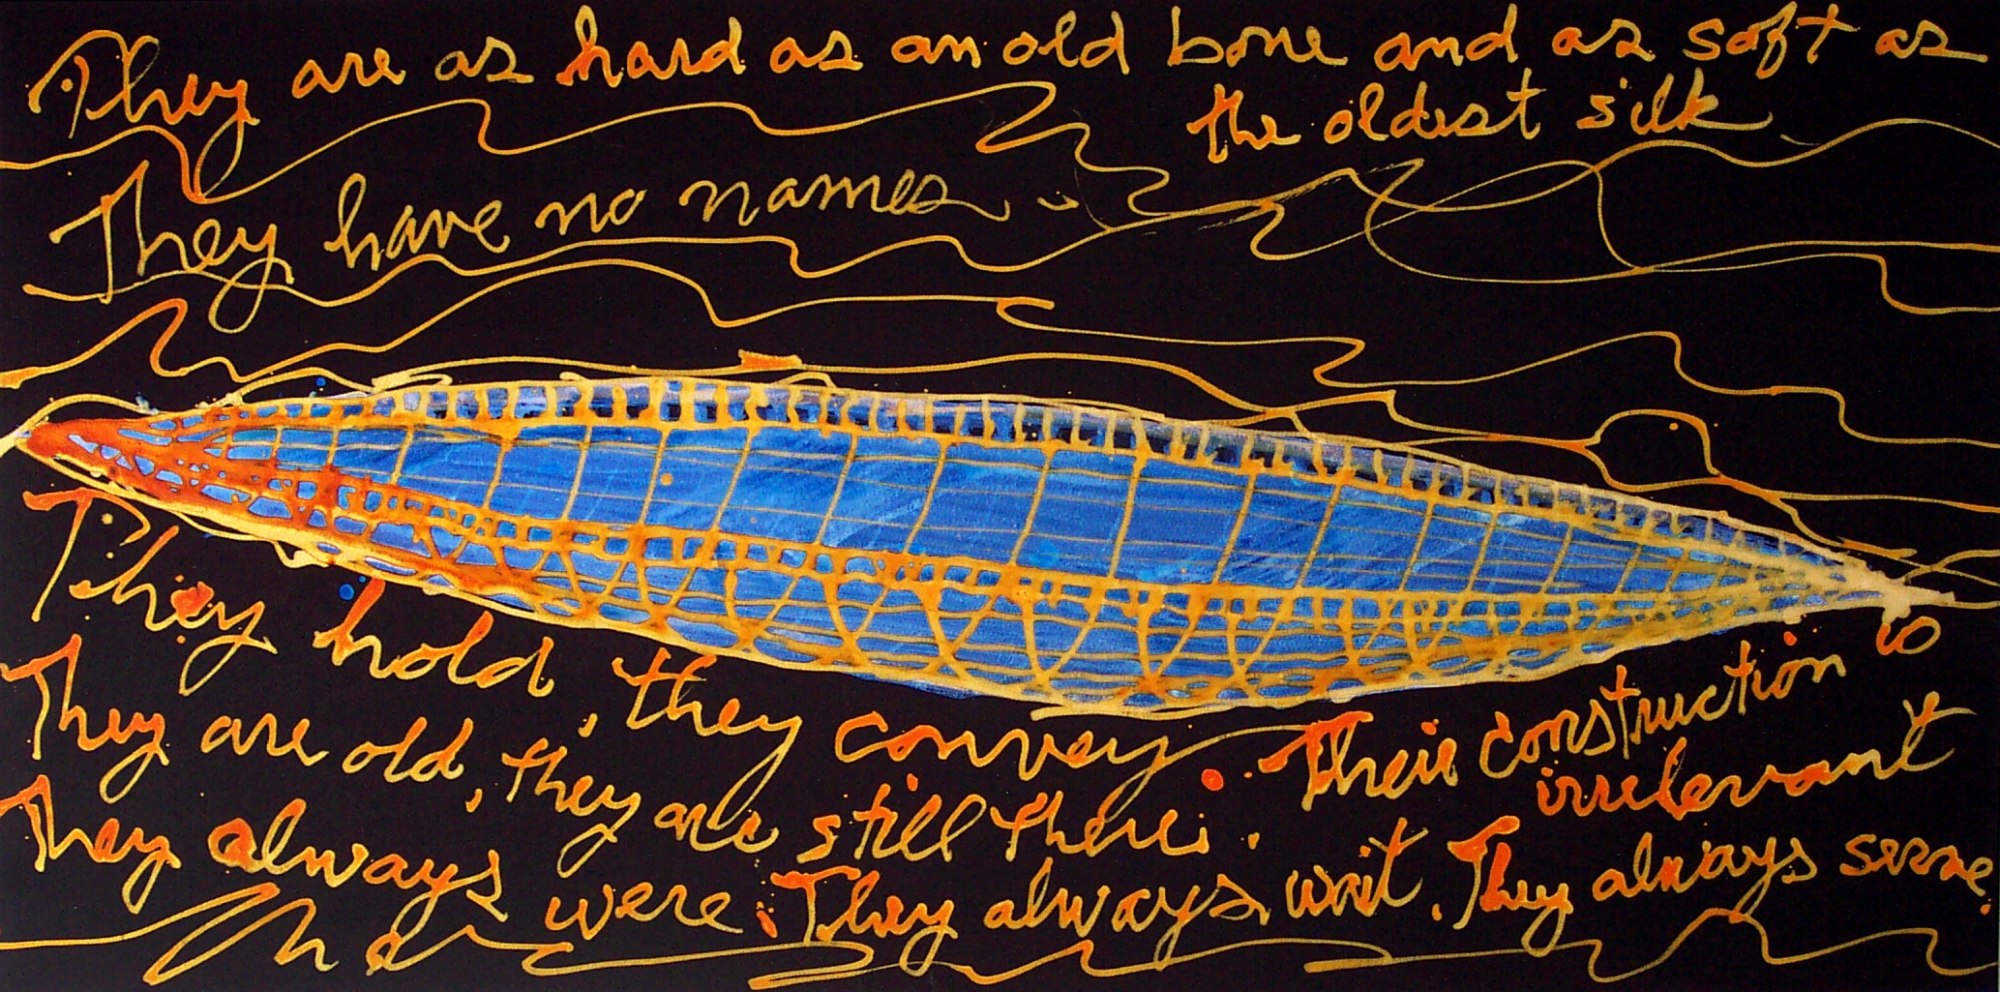 They are as hard as an old bone and as soft as
the oldest silk
They have no names
They hold, they convey. Their construction is
irrelevant
They are old, they are still there.
They always were. They always wait. They always serve.